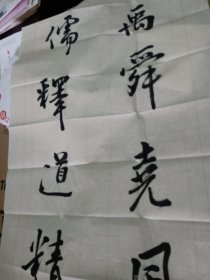 禹舜堯同
儒釋道精